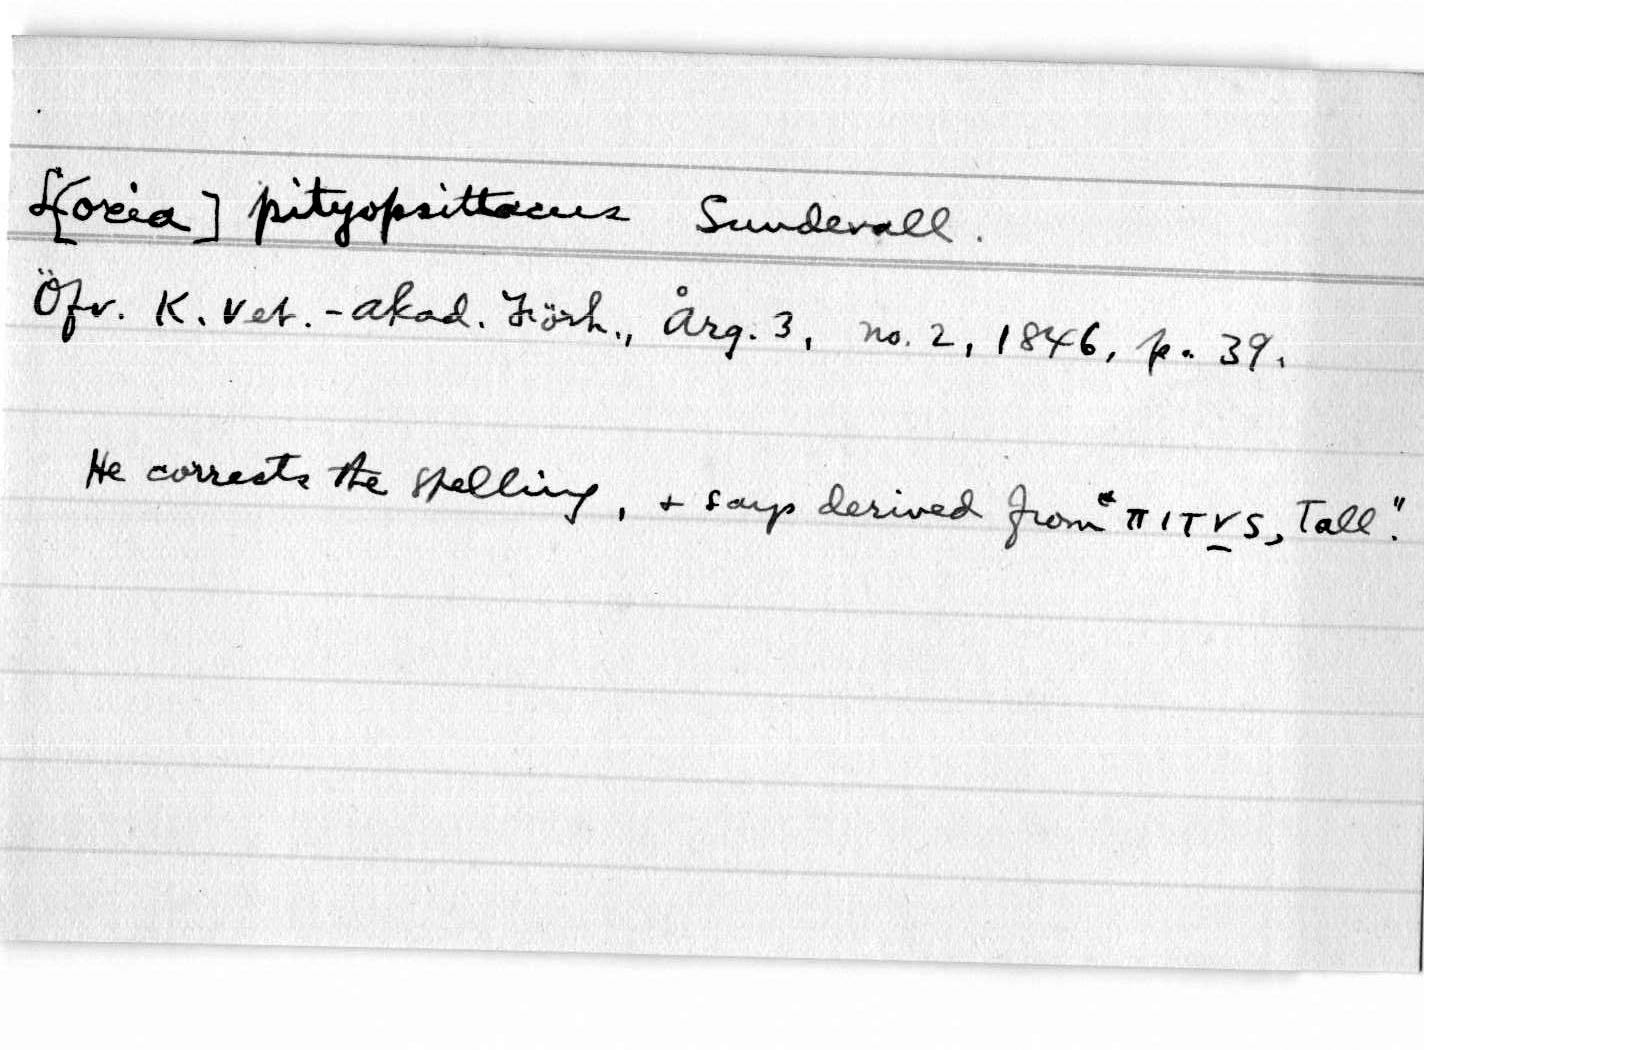 L[oxia] pityopsittacus Sundevall.
Öfv. K. Vet.-akad. Förh., Årg. 3, no. 2, 1846, p. 39.
He corrects the spelling, + says derived from "πιτυς, Tall".